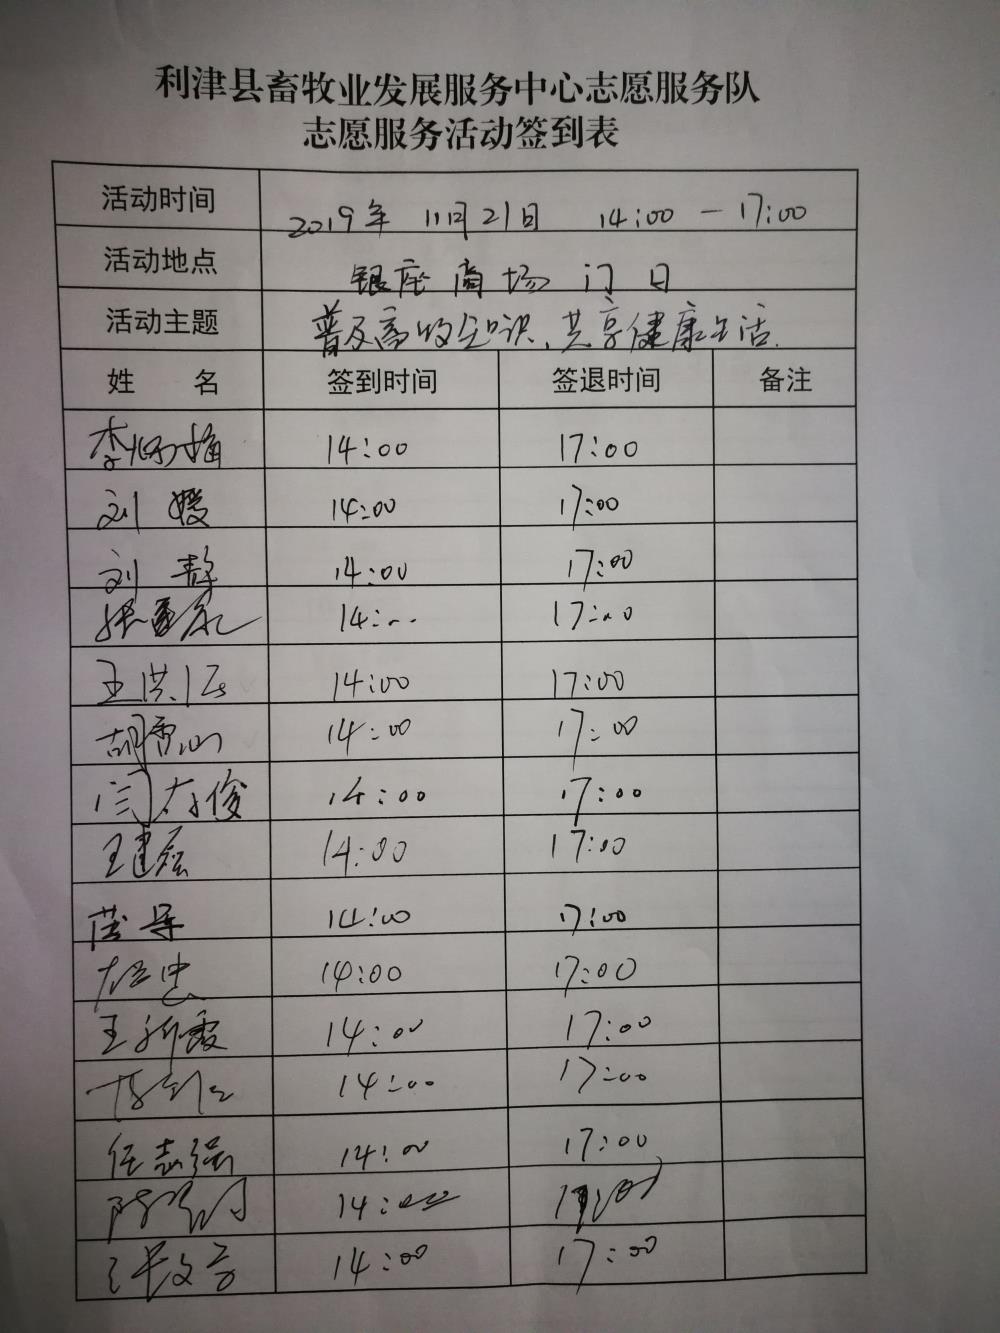 利津县畜牧业发展服务中心志愿服务队
志愿服务活动签到表
活动时间 2019年 11月21日 14:00 — 17:00
活动地点 银座商场 门口
活动主题 普及畜牧知识、共享健康生活.
姓 名 签到时间 签退时间 备注
李 14:00 17:00
刘媛 14:00 17:00
刘静 14:00 17:00
张 14:00 17:00
王洪 14:00 17:00
胡雪 14:00 17:00
闫俊 14:00 17:00
王建磊 14:00 17:00
14:00 17:00
忠 14:00 17:00
王新霞 14:00 17:00
14:00 17:00
任志强 14:00 17:00
14:00
文 14:00 17:00